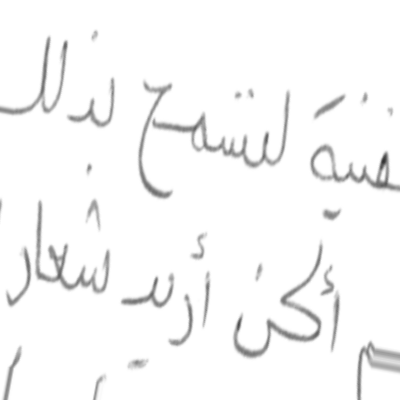 فنية لتسمح بذلك
أكن أريد شعارا